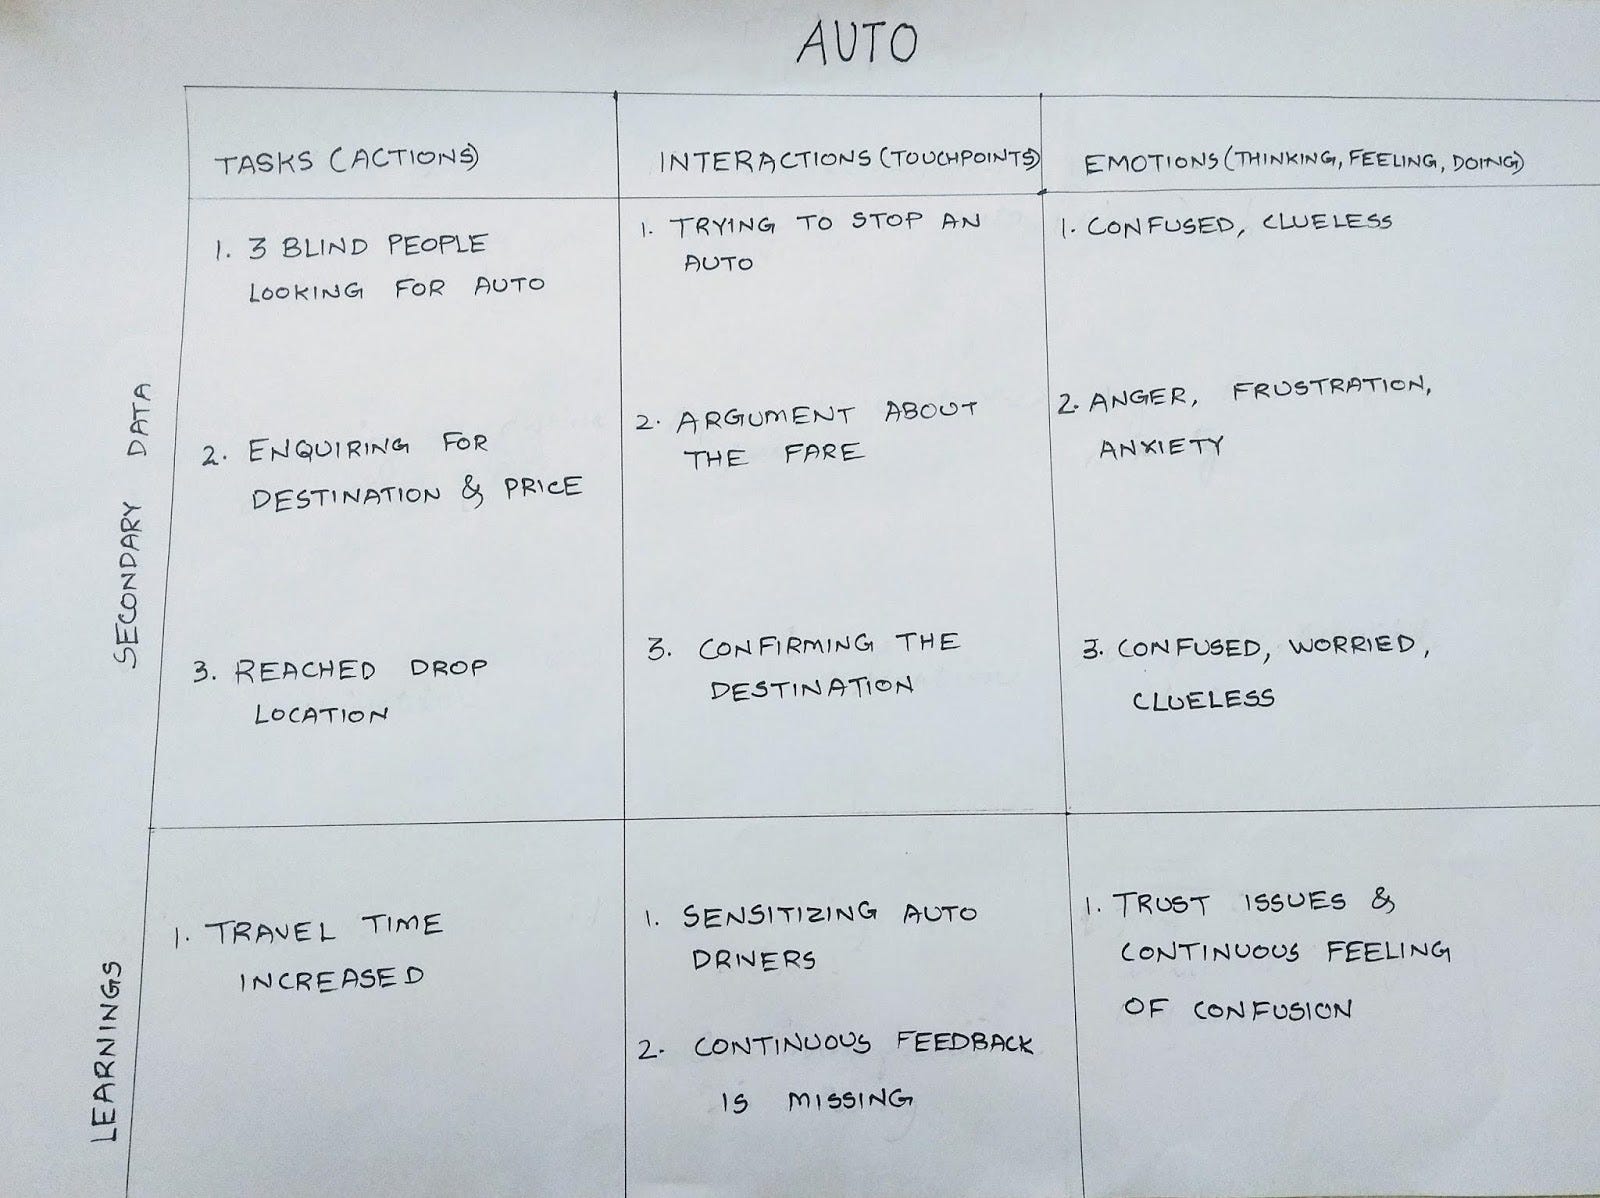 AUTO
TASKS (ACTIONS)
INTERACTIONS (TOUCHPOINTS)
EMOTIONS (THINKING, FEELING, DOING)
SECONDARY DATA
1. 3 BLIND PEOPLE
LOOKING FOR AUTO
2. ENQUIRING FOR
DESTINATION & PRICE
3. REACHED DROP
LOCATION
1. TRYING TO STOP AN
AUTO
2. ARGUMENT ABOUT
THE FARE
3. CONFIRMING THE
DESTINATION
1. CONFUSED, CLUELESS
2. ANGER, FRUSTRATION,
ANXIETY
3. CONFUSED, WORRIED,
CLUELESS
LEARNINGS
1. TRAVEL TIME
INCREASED
1. SENSITIZING AUTO
DRIVERS
2. CONTINUOUS FEEDBACK
IS MISSING
1. TRUST ISSUES &
CONTINUOUS FEELING
OF CONFUSION